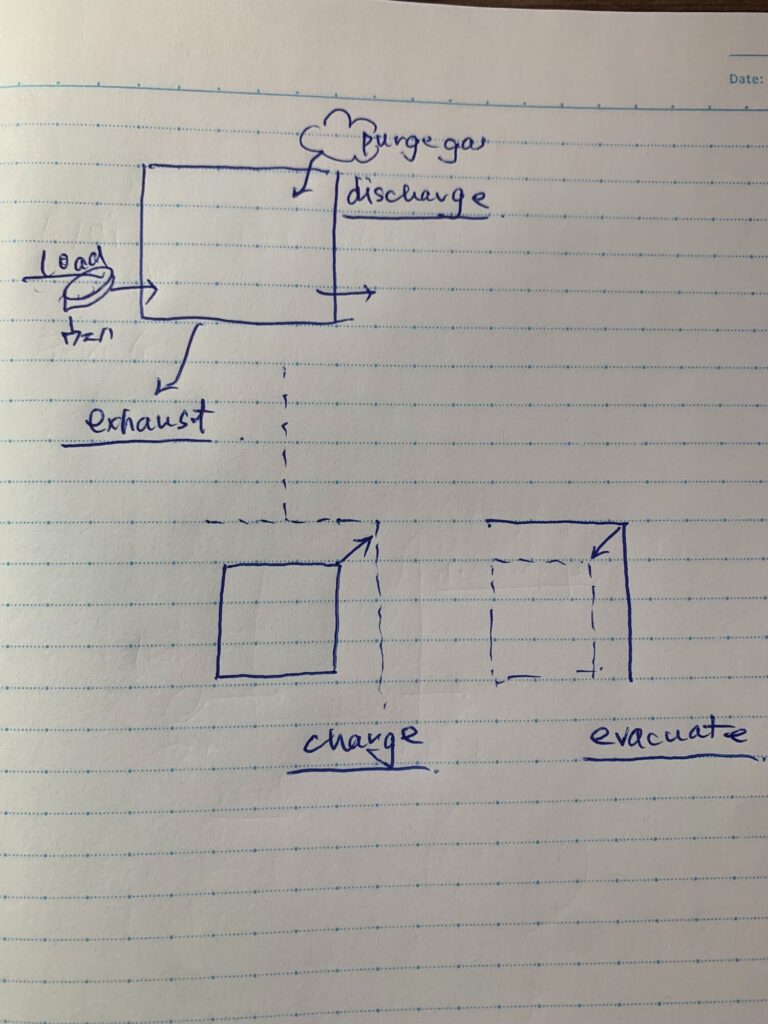 Date:
purge gas
discharge
load
exhaust
charge
evacuate